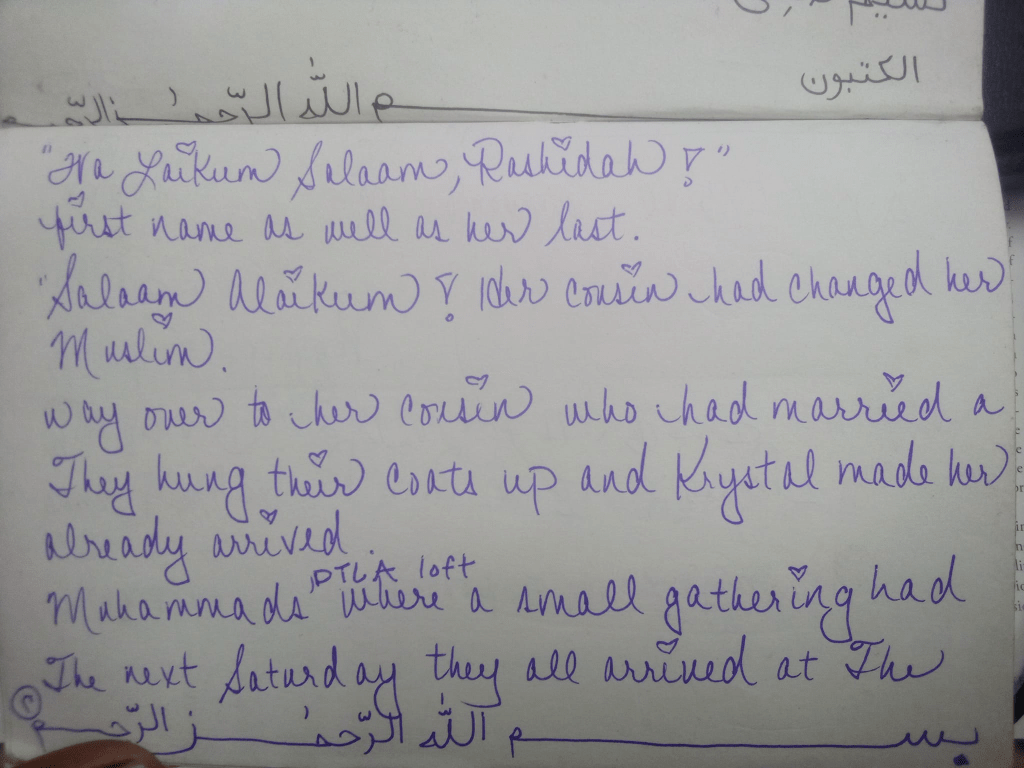 الكتبون
ـم اللّٰه الرّحمٰـن الرّحيـم
"Wa Laikum Salaam, Rashidah!"
first name as well as her last.
"Salaam Alaikum! Her cousin had changed her
Muslim.
way over to her cousin who had married a
They hung their coats up and Krystal made her
already arrived.
DTLA loft
Muhammads' where a small gathering had
The next Saturday they all arrived at The
©
بســـم اللّٰه الرّحمٰـــن الرّحيـــم